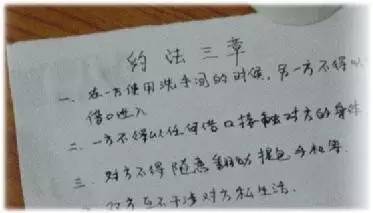 约法三章
一、在一方使用洗手间的时候，另一方不得以
借口进入
二、一方不得以任何借口接触对方的身体
三、对方不得随意翻动提包手机等.
双方互不干涉对方私生活.